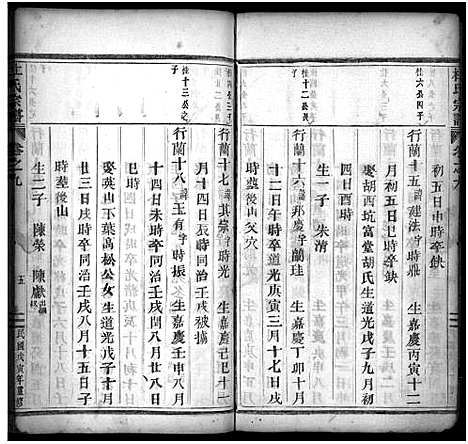 杜氏宗譜
杜十六公四子
初五日申時卒缺
行蘭十五諱建法字時鼎 生嘉慶丙寅十二
月初五日巳時卒缺
娶胡西坑富堂胡氏生道光戊子九月初
四日酉時
生一子 朱清
行蘭十六諱邦慶字蘭珪 生嘉慶丁卯十月
十二日卯時卒道光庚寅三月十七日戌
時塟後山父穴
行蘭十七諱其崇字時光 生嘉慶己巳十一
月十四日辰時同治壬戌被擄
杜十二公長子
行蘭十八諱玉有字時振 生嘉慶壬申八月
十四日未時卒同治壬戌八月廿八日
巳時
娶英山下葉高松公女生道光戊子十月
廿三日戌時卒同治壬戌八月十五日子
時塟後山
生二子 陳榮 陳獻出繼
杜氏宗譜
卷之九
五
民國戊寅年重修